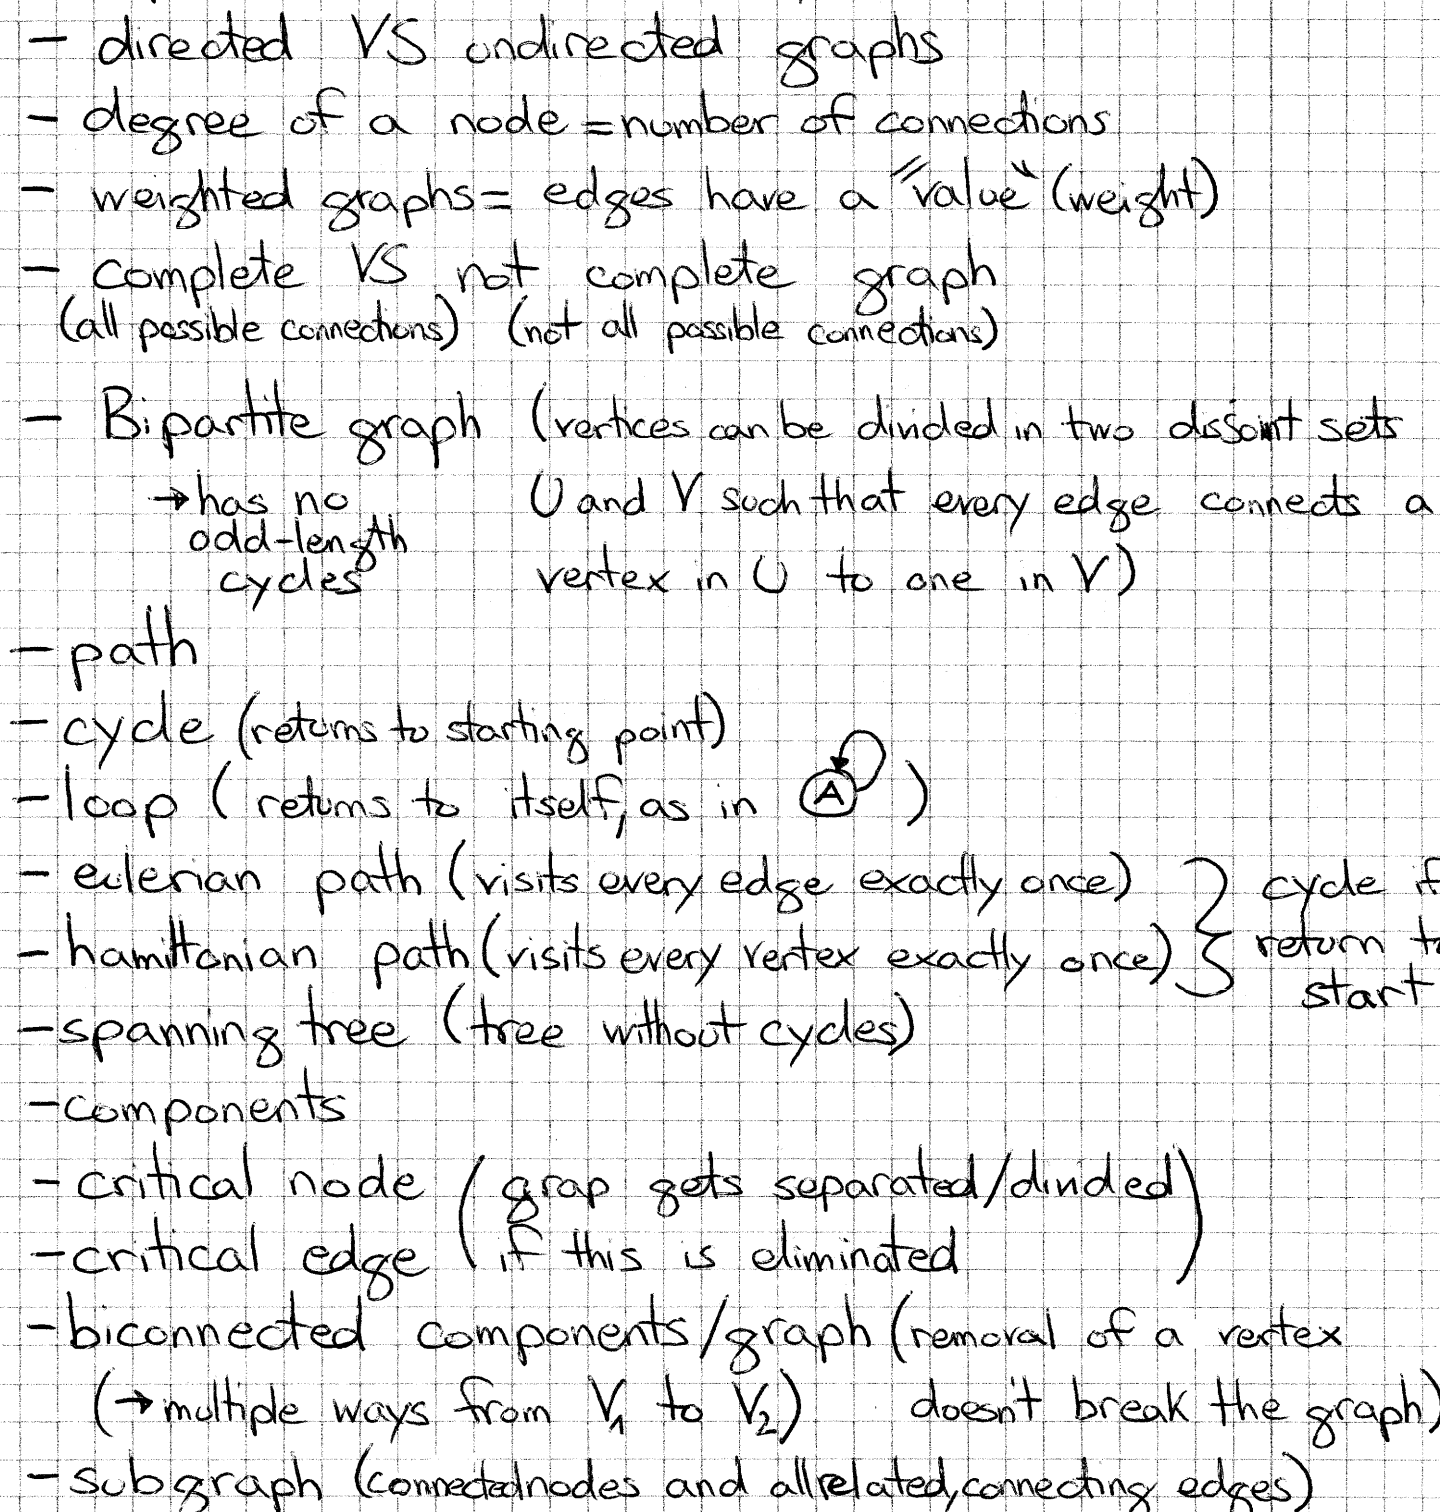 - directed VS undirected graphs
- degree of a node = number of connections
- weighted graphs = edges have a "value" (weight)
- complete VS not complete graph
(all possible connections) (not all possible connections)
- Bipartite graph (vertices can be divided in two disjoint sets
→ has no U and V such that every edge connects a
odd-length
cycles vertex in U to one in V)
- path
- cycle (returns to starting point)
- loop (returns to itself, as in A )
- eulerian path (visits every edge exactly once) } cycle if
- hamiltonian path (visits every vertex exactly once) return to
start
- spanning tree (tree without cycles)
- components
- critical node (grap gets separated/divided
- critical edge if this is eliminated)
- biconnected components/graph (removal of a vertex
(→ multiple ways from V1 to V2) doesn't break the graph)
- subgraph (connected nodes and all related, connecting edges)